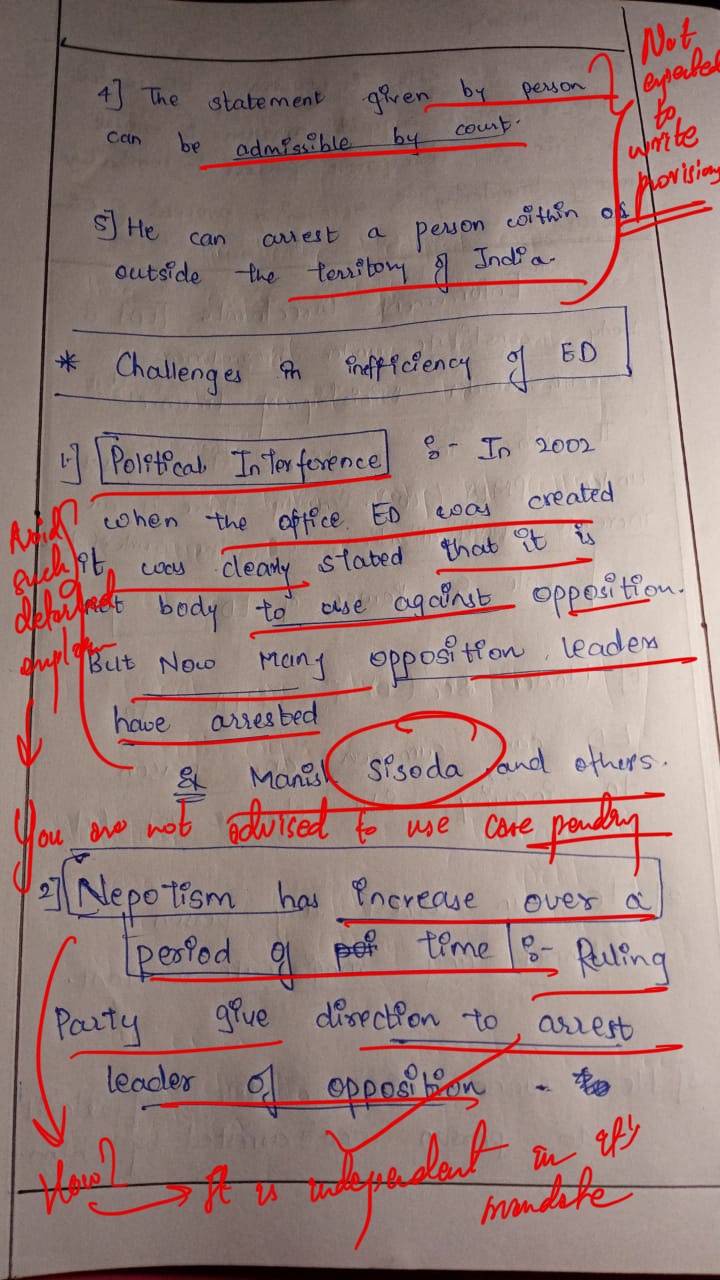 4] The statement given by person
can be admissible by court.
Not
expected
to
write
provisions
5] He can arrest a person within or
outside the territory of India.
* Challenges in inefficiency of ED
1.] Political Interference :- In 2002
when the office ED was created
it was clearly stated that it is
not body to use against opposition.
But Now Many opposition leaders
have arrested
Avoid
such
detailed
Ex Manish Sisoda and others.
You are not advised to use case pending
2] Nepotism has increase over a
period of time :- Ruling
Party give direction to arrest
leader of opposition -
How? → It is independent in it's
mandate